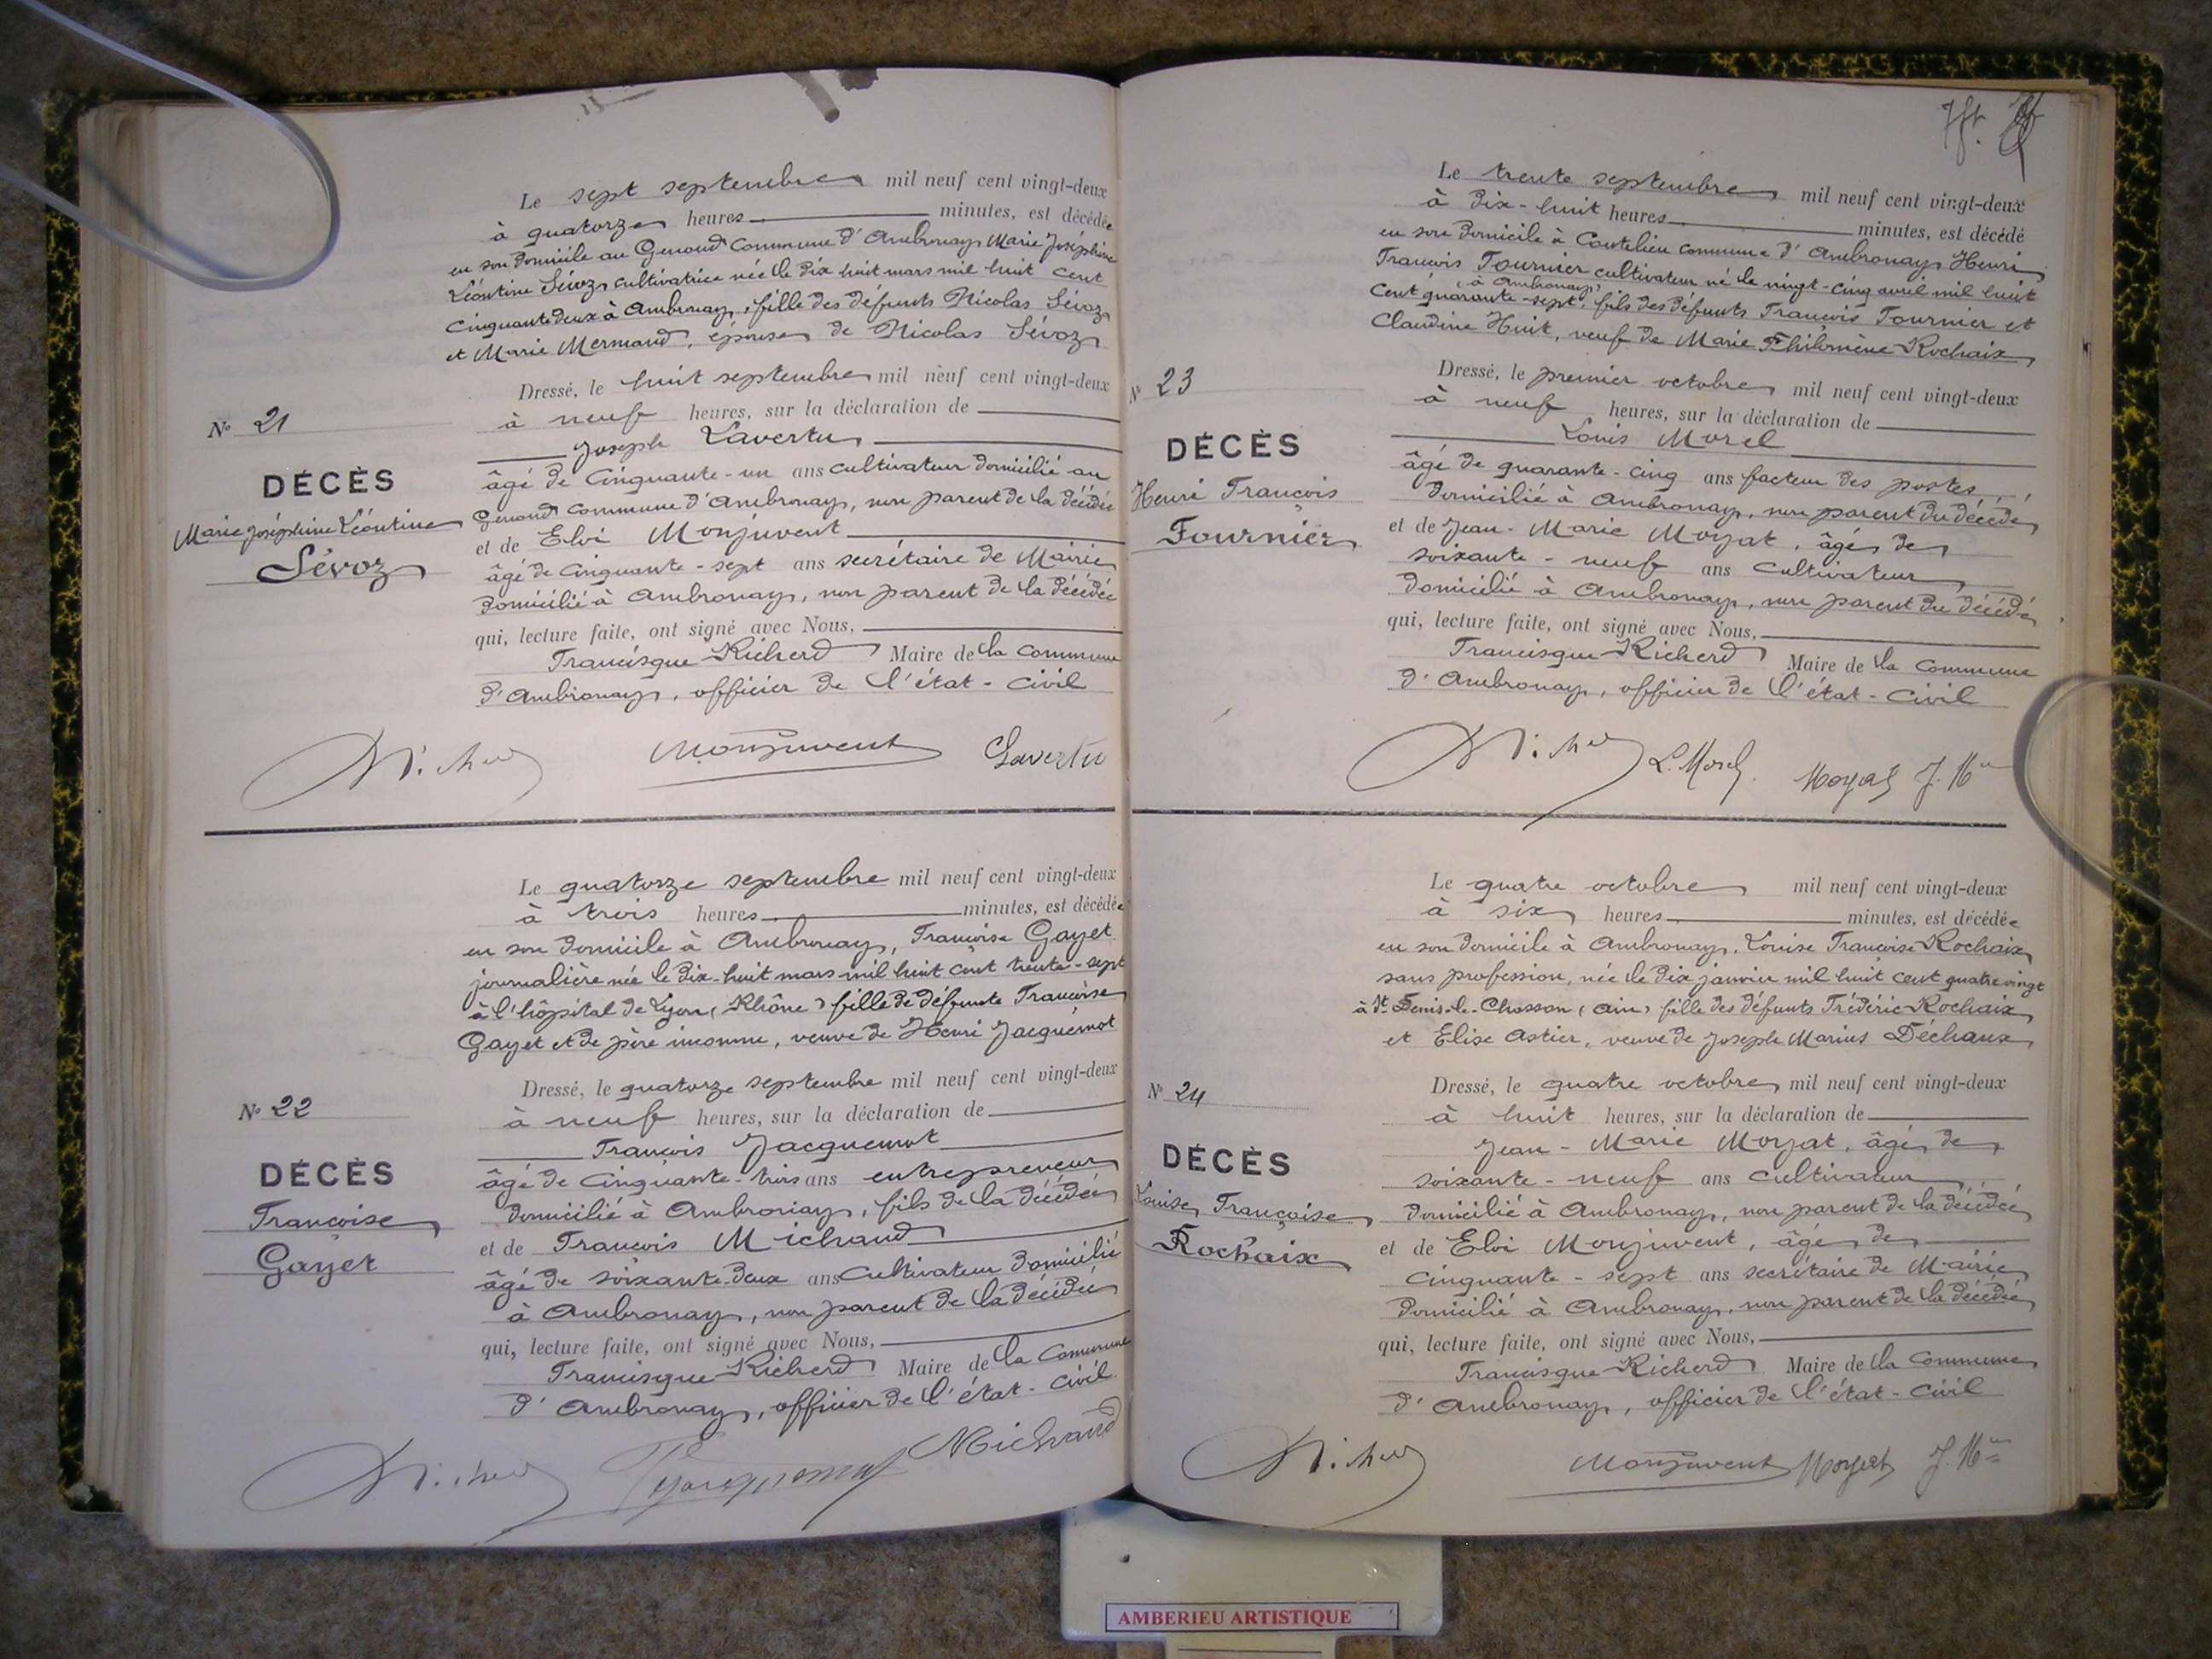 Le sept septembre mil neuf cent vingt-deux
à quatorze heures minutes, est décédée
en son domicile au Genoud Commune d'Ambronay Marie Joséphine
Léontine Sévoz cultivatrice née le dix huit mars mil huit cent
cinquante deux à Ambronay, fille des défunts Nicolas Sévoz
et Marie Mermand, épouse de Nicolas Sévoz
Dressé, le huit septembre mil neuf cent vingt-deux
à neuf heures, sur la déclaration de
Joseph Lavertu
âgé de Cinquante-un ans cultivateur domicilié au
Genoud commune d'Ambronay, non parent de la décédée
et de Eloi Monjuvent
âgé de Cinquante-sept ans secrétaire de Mairie
domicilié à Ambronay, non parent de la décédée
qui, lecture faite, ont signé avec Nous,
Francisque Richerd Maire de la commune
d'Ambronay, officier de l'état-civil
Nº 21
DÉCÈS
Marie Joséphine Léontine
Sévoz
Monjuvent Lavertu
Le quatorze septembre mil neuf cent vingt-deux
à trois heures minutes, est décédée
en son domicile à Ambronay, Françoise Gayet
journalière née le dix-huit mars mil huit cent trente-sept
à l'hôpital de Lyon (Rhône) fille de défunte Françoise
Gayet et de père inconnu, veuve de Henri Jacquemot
Dressé, le quatorze septembre mil neuf cent vingt-deux
à neuf heures, sur la déclaration de
François Jacquemot
âgé de Cinquante-trois ans entrepreneur
domicilié à Ambronay, fils de la décédée
et de François Michaud
âgé de soixante-deux ans cultivateur domicilié
à Ambronay, non parent de la décédée
qui, lecture faite, ont signé avec Nous,
Francisque Richerd Maire de la Commune
d'Ambronay, officier de l'état-civil
Nº 22
DÉCÈS
Françoise
Gayet
Michaud
Le trente septembre mil neuf cent vingt-deux
à dix-huit heures minutes, est décédé
en son domicile à Coutelieu commune d'Ambronay Henri
François Fournier cultivateur né le vingt-cinq avril mil huit
(à Ambronay)
cent quarante-sept, fils des défunts François Fournier et
Claudine Huit, veuf de Marie Philomène Rochaix
Dressé, le premier octobre mil neuf cent vingt-deux
à neuf heures, sur la déclaration de
Louis Morel
âgé de quarante-cinq ans facteur des postes
domicilié à Ambronay, non parent du décédé
et de Jean-Marie Moyat, âgé de
soixante-neuf ans cultivateur
domicilié à Ambronay, non parent du décédé
qui, lecture faite, ont signé avec Nous,
Francisque Richerd Maire de la Commune
d'Ambronay, officier de l'état-civil
Nº 23
DÉCÈS
Henri François
Fournier
L. Morel Moyat J. Mie
Le quatre octobre mil neuf cent vingt-deux
à six heures minutes, est décédée
en son domicile à Ambronay, Louise Françoise Rochaix
sans profession, née le dix janvier mil huit cent quatre vingt
à St Denis-le-Chosson (Ain) fille des défunts Frédéric Rochaix
et Elise Astier, veuve de Joseph Marius Déchaux
Dressé, le quatre octobre mil neuf cent vingt-deux
à huit heures, sur la déclaration de
Jean-Marie Moyat, âgé de
soixante-neuf ans cultivateur
domicilié à Ambronay, non parent de la décédée
et de Eloi Monjuvent, âgé de
cinquante-sept ans secrétaire de Mairie
domicilié à Ambronay, non parent de la décédée
qui, lecture faite, ont signé avec Nous,
Francisque Richerd Maire de la Commune
d'Ambronay, officier de l'état-civil
Nº 24
DÉCÈS
Louise Françoise
Rochaix
Monjuvent Moyat J. Mie
AMBERIEU ARTISTIQUE